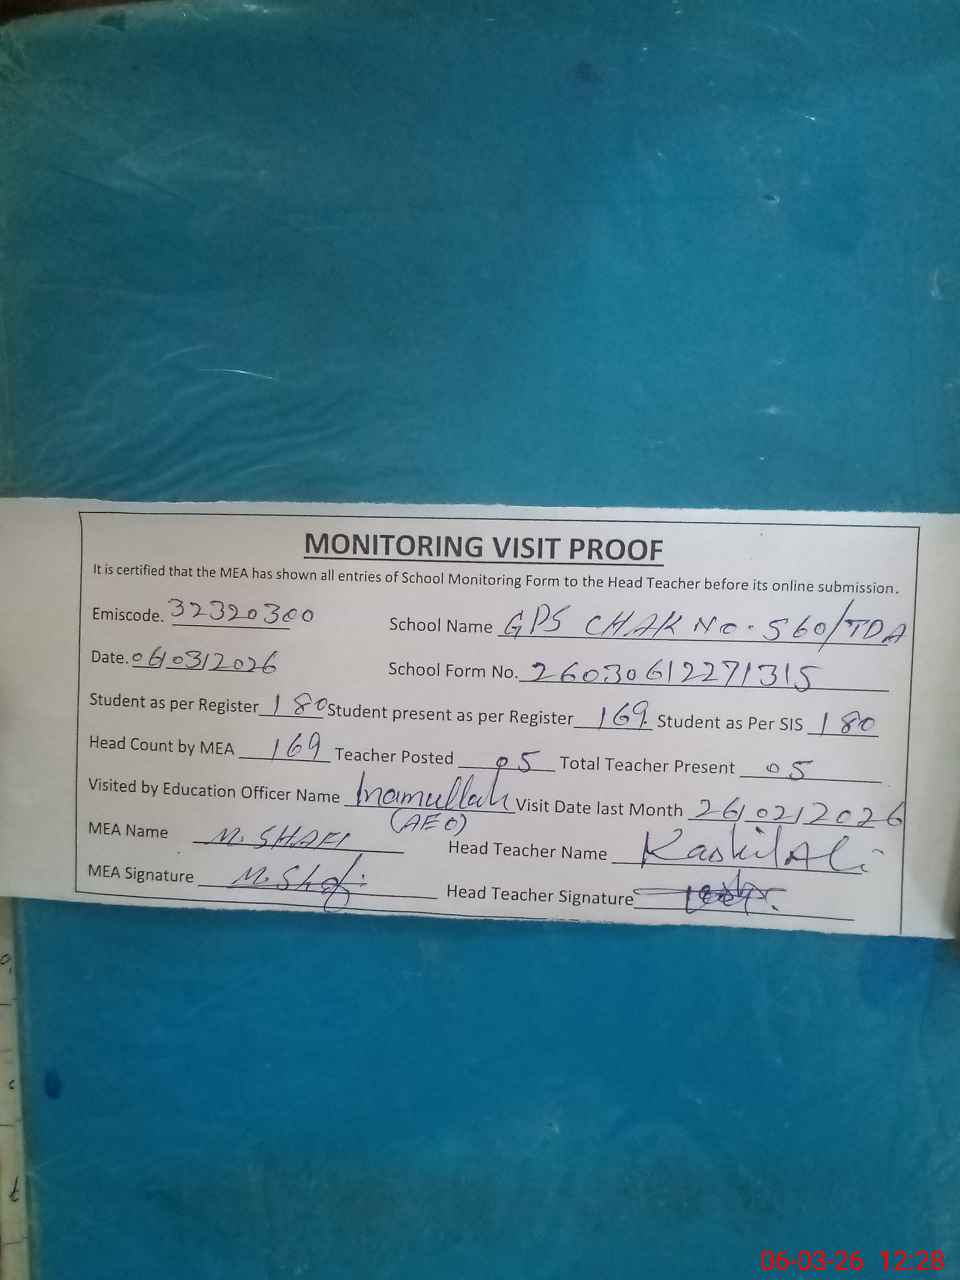 MONITORING VISIT PROOF
It is certified that the MEA has shown all entries of School Monitoring Form to the Head Teacher before its online submission.
Emiscode. 32320300 School Name GPS CHAK No. 560/TDA
Date. 06/03/2026 School Form No. 26030612271315
Student as per Register 180 Student present as per Register 169. Student as Per SIS 180
Head Count by MEA 169 Teacher Posted 05 Total Teacher Present 05
Visited by Education Officer Name Inamullah Visit Date last Month 26/02/2026
(AEO)
MEA Name M. SHAFI Head Teacher Name Kashif Ali
MEA Signature M. Shafi Head Teacher Signature
06-03-26 12:28